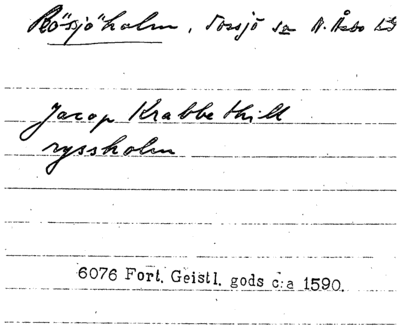 Rösjöholm, Tossjö sn N. Åsbo hd
Jacop Krabbe thill
ryssholm
6076 Fort. Geistl. gods c:a 1590.